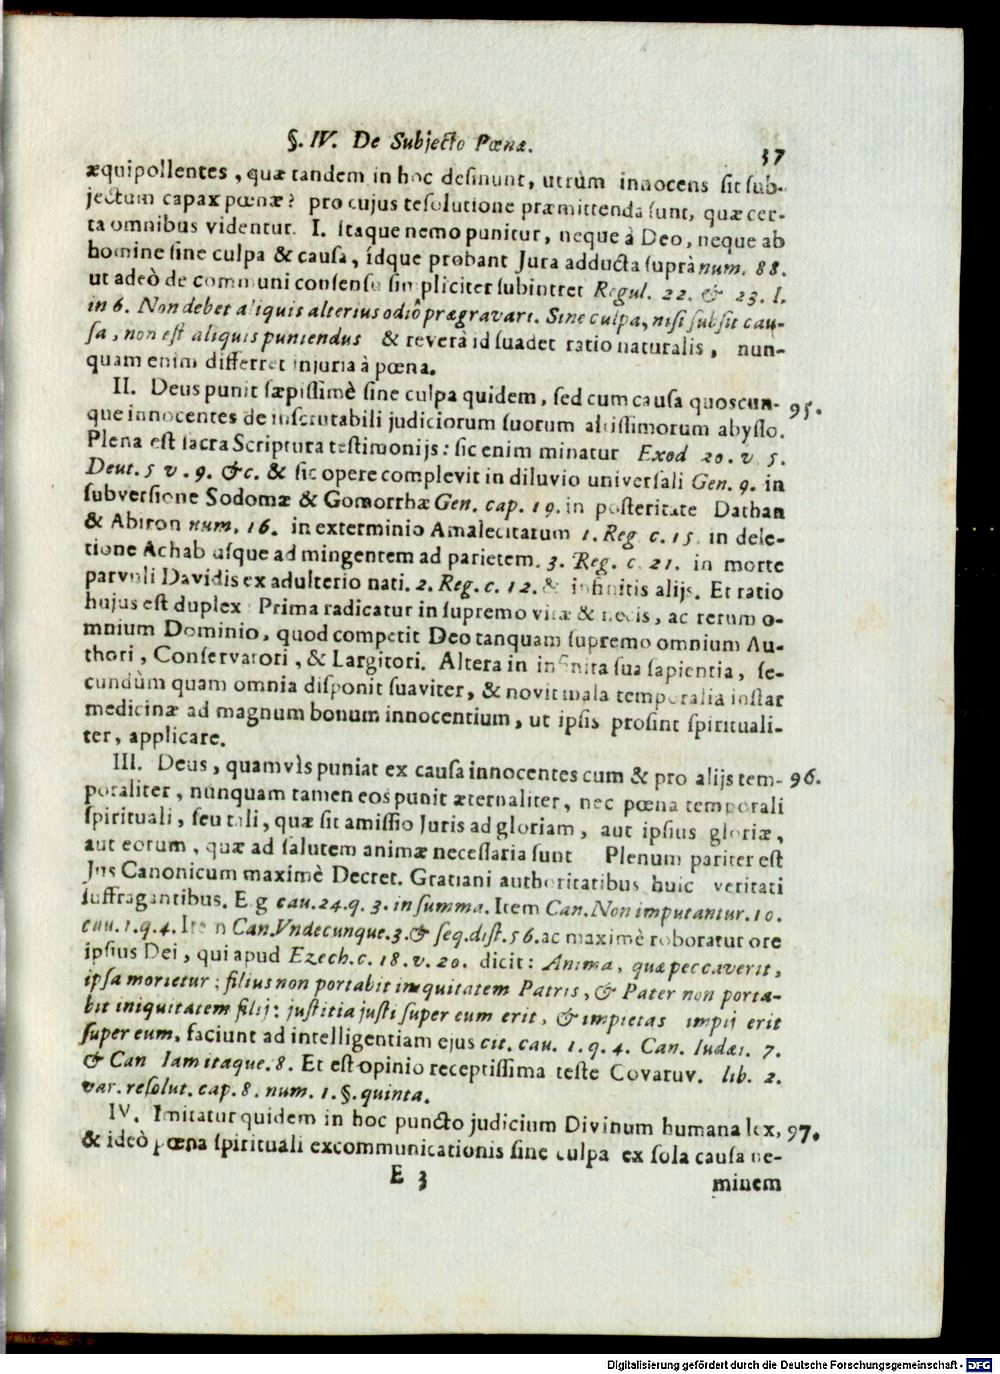 §. IV. De Subjecto Pœnæ.
37
æquipollentes, quæ tandem in hoc desinunt, utrùm innocens sit sub-
jectum capax pœnæ? pro cujus resolutione præmittenda sunt, quæ cer-
ta omnibus videntur. I. Itaque nemo punitur, neque à Deo, neque ab
homine sine culpa & causa, idque probant Jura adducta suprà num. 88.
ut adeò de communi consensu simpliciter subintret Regul. 22. & 23. I.
in 6. Non debet aliquis alterius odiô prægravari. Sine culpa, nisi subsit cau-
sa, non est aliquis puniendus & reverà id suadet ratio naturalis, nun-
quam enim differret injuria à pœna.
II. Deus punit sæpissimè sine culpa quidem, sed cum causa quoscun-
95.
que innocentes de inscrutabili judiciorum suorum altissimorum abysso.
Plena est sacra Scriptura testimonijs: sic enim minatur Exod 20. v. 5.
Deut. 5 v. 9. &c. & sic opere complevit in diluvio universali Gen. 9. in
subversione Sodomæ & Gomorrhæ Gen. cap. 19. in posteritate Dathan
& Abiron num. 16. in exterminio Amalecitarum 1. Reg. c. 15. in dele-
tione Achab usque ad mingentem ad parietem. 3. Reg. c. 21. in morte
parvuli Davidis ex adulterio nati. 2. Reg. c. 12. & infinitis alijs. Et ratio
hujus est duplex Prima radicatur in supremo vitæ & necis, ac rerum o-
mnium Dominio, quod competit Deo tanquam supremo omnium Au-
thori, Conservatori, & Largitori. Altera in infinita sua sapientia, se-
cundùm quam omnia disponit suaviter, & novit mala temporalia instar
medicinæ ad magnum bonum innocentium, ut ipsis prosint spirituali-
ter, applicare.
III. Deus, quamvìs puniat ex causa innocentes cum & pro alijs tem-
96.
poraliter, nunquam tamen eos punit æternaliter, nec pœna temporali
spirituali, seu tali, quæ sit amissio Juris ad gloriam, aut ipsius gloriæ,
aut eorum, quæ ad salutem animæ necessaria sunt Plenum pariter est
Jus Canonicum maximè Decret. Gratiani authoritatibus huic veritati
suffragantibus. E g cau. 24. q. 3. in summa. Item Can. Non imputantur. 10.
cau. 1. q. 4. Item Can. Vndecunque. 3. & seq. dist. 56. ac maximè roboratur ore
ipsius Dei, qui apud Ezech. c. 18. v. 20. dicit: Anima, quæ peccaverit,
ipsa morietur; filius non portabit iniquitatem Patris, & Pater non porta-
bit iniquitatem filij: justitia justi super eum erit, & impietas impij erit
super eum. faciunt ad intelligentiam ejus cit. cau. 1. q. 4. Can. Iudæi. 7.
& Can Iam itaque. 8. Et est opinio receptissima teste Covaruv. lib. 2.
var. resolut. cap. 8. num. 1. §. quinta.
IV. Imitatur quidem in hoc puncto judicium Divinum humana lex,
97.
& ideò pœna spirituali excommunicationis sine culpa ex sola causa ne-
E 3
minem
Digitalisierung gefördert durch die Deutsche Forschungsgemeinschaft - DFG